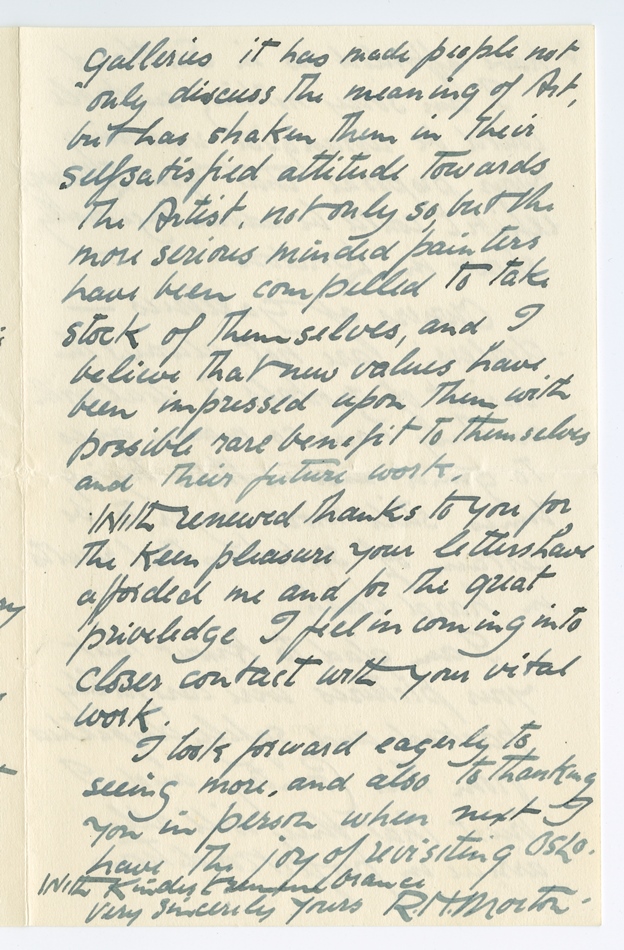 Galleries it has made people not
"only discuss the meaning of Art,
but has shaken them in their
selfsatisfied attitude towards
the Artist, not only so, but the
more serious minded painters
have been compelled to take
stock of themselves, and I
believe that new values have
been impressed upon them with
possible rare benefit to themselves
and their future work.
With renewed thanks to you for
the keen pleasure your letters have
afforded me and for the great
priveledge I feel in coming into
closer contact with your vital
work.
I look forward eagerly to
seeing more, and also to thanking
you in person when next I
have the joy of revisiting Oslo.
With kindest remembrance
Very sincerely yours R.H.Morton.